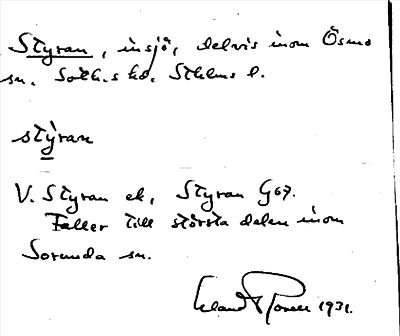 Styran, insjö, delvis inom Ösmo
sn. Soth.s hd. Sthlms l.
stýran
V. Styran ek, Styran G67.
Faller till största delen inom
Sorunda sn.
1931.